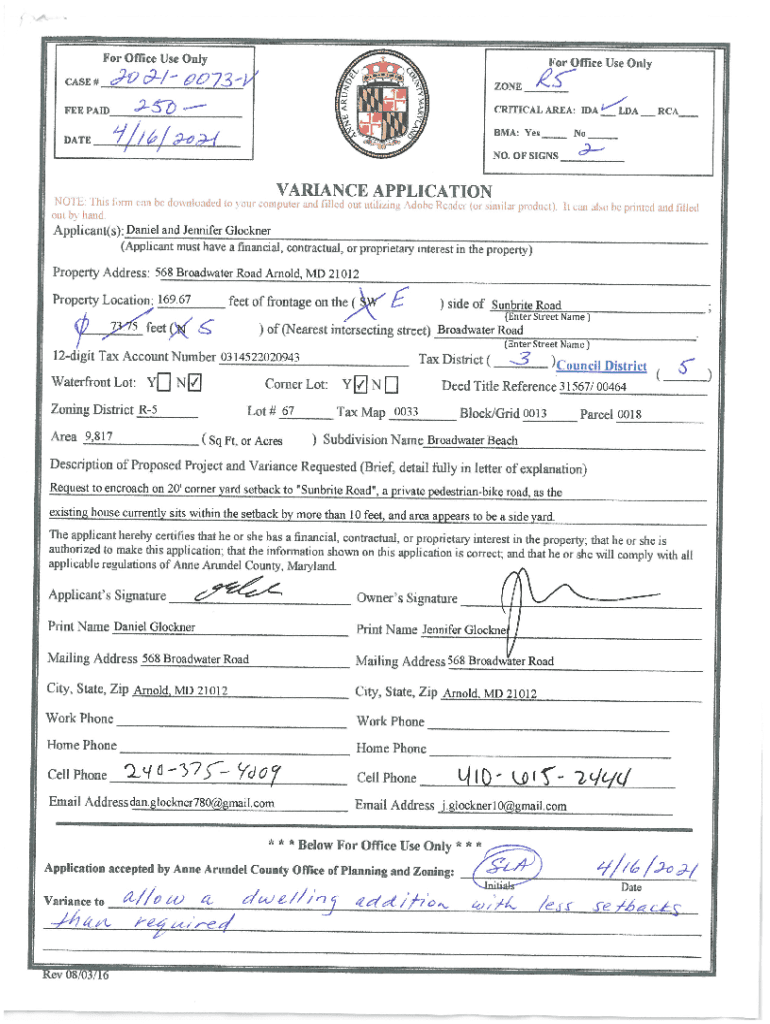 For Office Use Only
CASE # 2021-0073-V
FEE PAID 250 —
DATE 4/16/2021
ANNE ARUNDEL COUNTY MARYLAND
For Office Use Only
ZONE R5
CRITICAL AREA: IDA ✓ LDA ___ RCA ___
BMA: Yes ___ No ___
NO. OF SIGNS 2
VARIANCE APPLICATION
NOTE: This form can be downloaded to your computer and filled out utilizing Adobe Reader (or similar product). It can also be printed and filled
out by hand.
Applicant(s): Daniel and Jennifer Glockner
(Applicant must have a financial, contractual, or proprietary interest in the property)
Property Address: 568 Broadwater Road Arnold, MD 21012
Property Location: 169.67 feet of frontage on the ( SW E ) side of Sunbrite Road ;
(Enter Street Name )
0 73.75 feet ( N S ) of (Nearest intersecting street) Broadwater Road .
(Enter Street Name )
12-digit Tax Account Number 0314522020943 Tax District ( 3 ) Council District ( 5 )
Waterfront Lot: Y ☐ N ☑ Corner Lot: Y ☑ N ☐ Deed Title Reference 31567/ 00464
Zoning District R-5 Lot # 67 Tax Map 0033 Block/Grid 0013 Parcel 0018
Area 9,817 ( Sq Ft. or Acres ) Subdivision Name Broadwater Beach
Description of Proposed Project and Variance Requested (Brief, detail fully in letter of explanation)
Request to encroach on 20' corner yard setback to "Sunbrite Road", a private pedestrian-bike road, as the
existing house currently sits within the setback by more than 10 feet, and area appears to be a side yard.
The applicant hereby certifies that he or she has a financial, contractual, or proprietary interest in the property; that he or she is
authorized to make this application; that the information shown on this application is correct; and that he or she will comply with all
applicable regulations of Anne Arundel County, Maryland.
Applicant's Signature Owner's Signature
Print Name Daniel Glockner Print Name Jennifer Glockner
Mailing Address 568 Broadwater Road Mailing Address 568 Broadwater Road
City, State, Zip Arnold, MD 21012 City, State, Zip Arnold, MD 21012
Work Phone Work Phone
Home Phone Home Phone
Cell Phone 240-375-4009 Cell Phone 410-615-2444
Email Address dan.glockner780@gmail.com Email Address j.glockner10@gmail.com
* * * Below For Office Use Only * * *
Application accepted by Anne Arundel County Office of Planning and Zoning: SLA 4/16/2021
Initials Date
Variance to allow a dwelling addition with less setbacks
than required
Rev 08/03/16